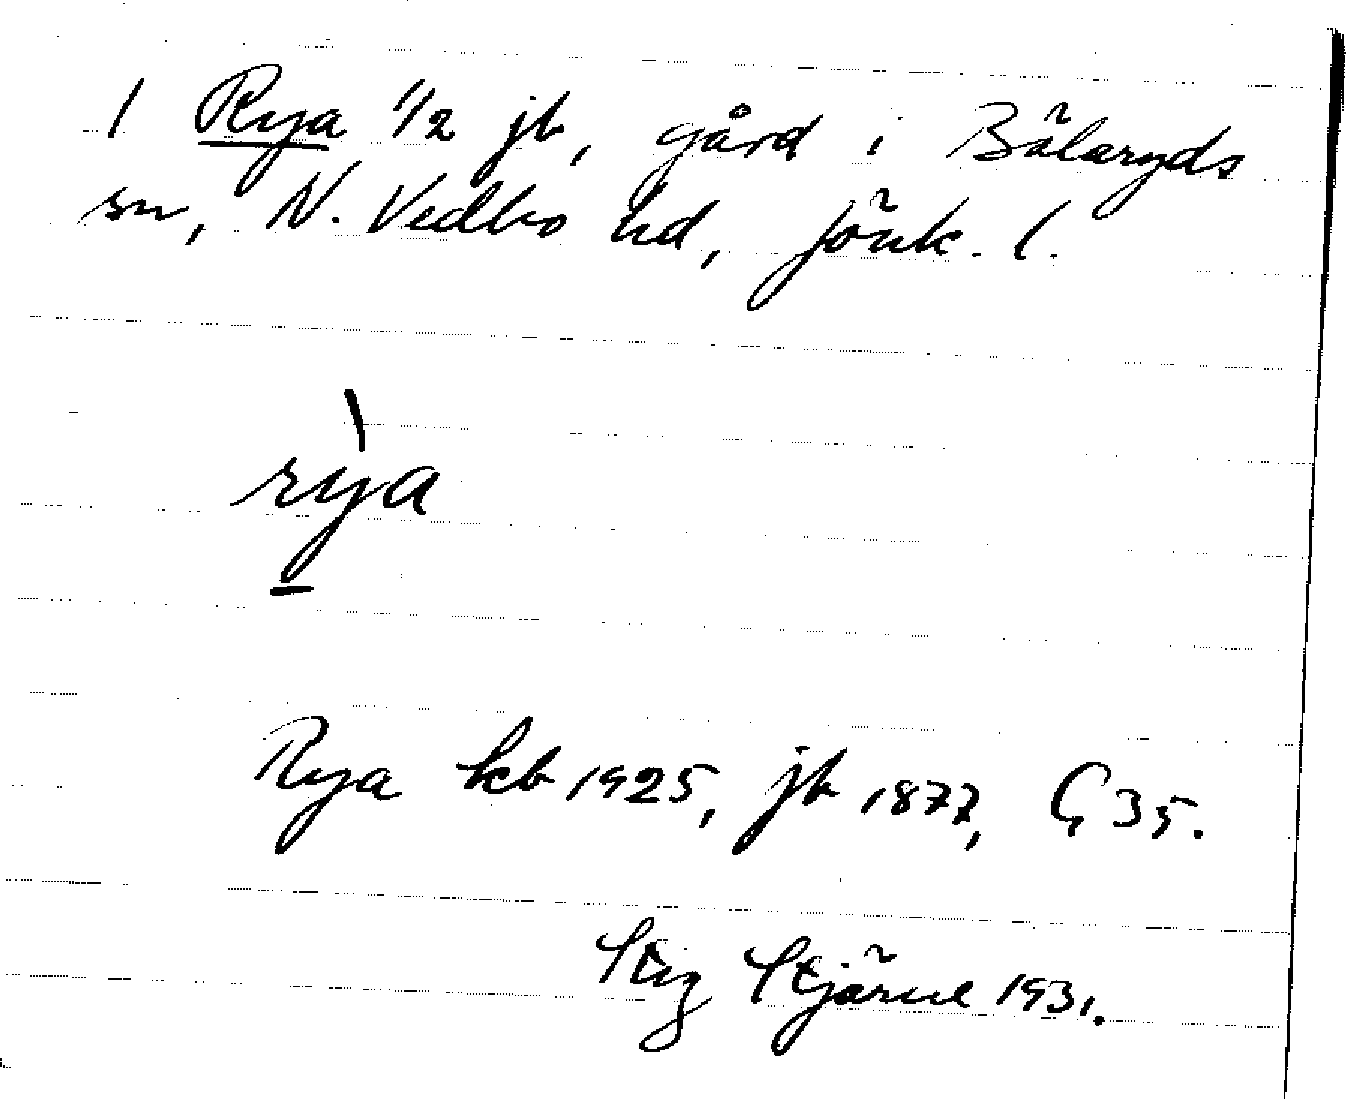 1 Rya 1/2 jb, gård i Bälaryds
sn, N. Vedbo hd, Jönk. l.
rỳa
Rya kb 1925, jb 1877, G 35.
Stig Stjärne 1931.